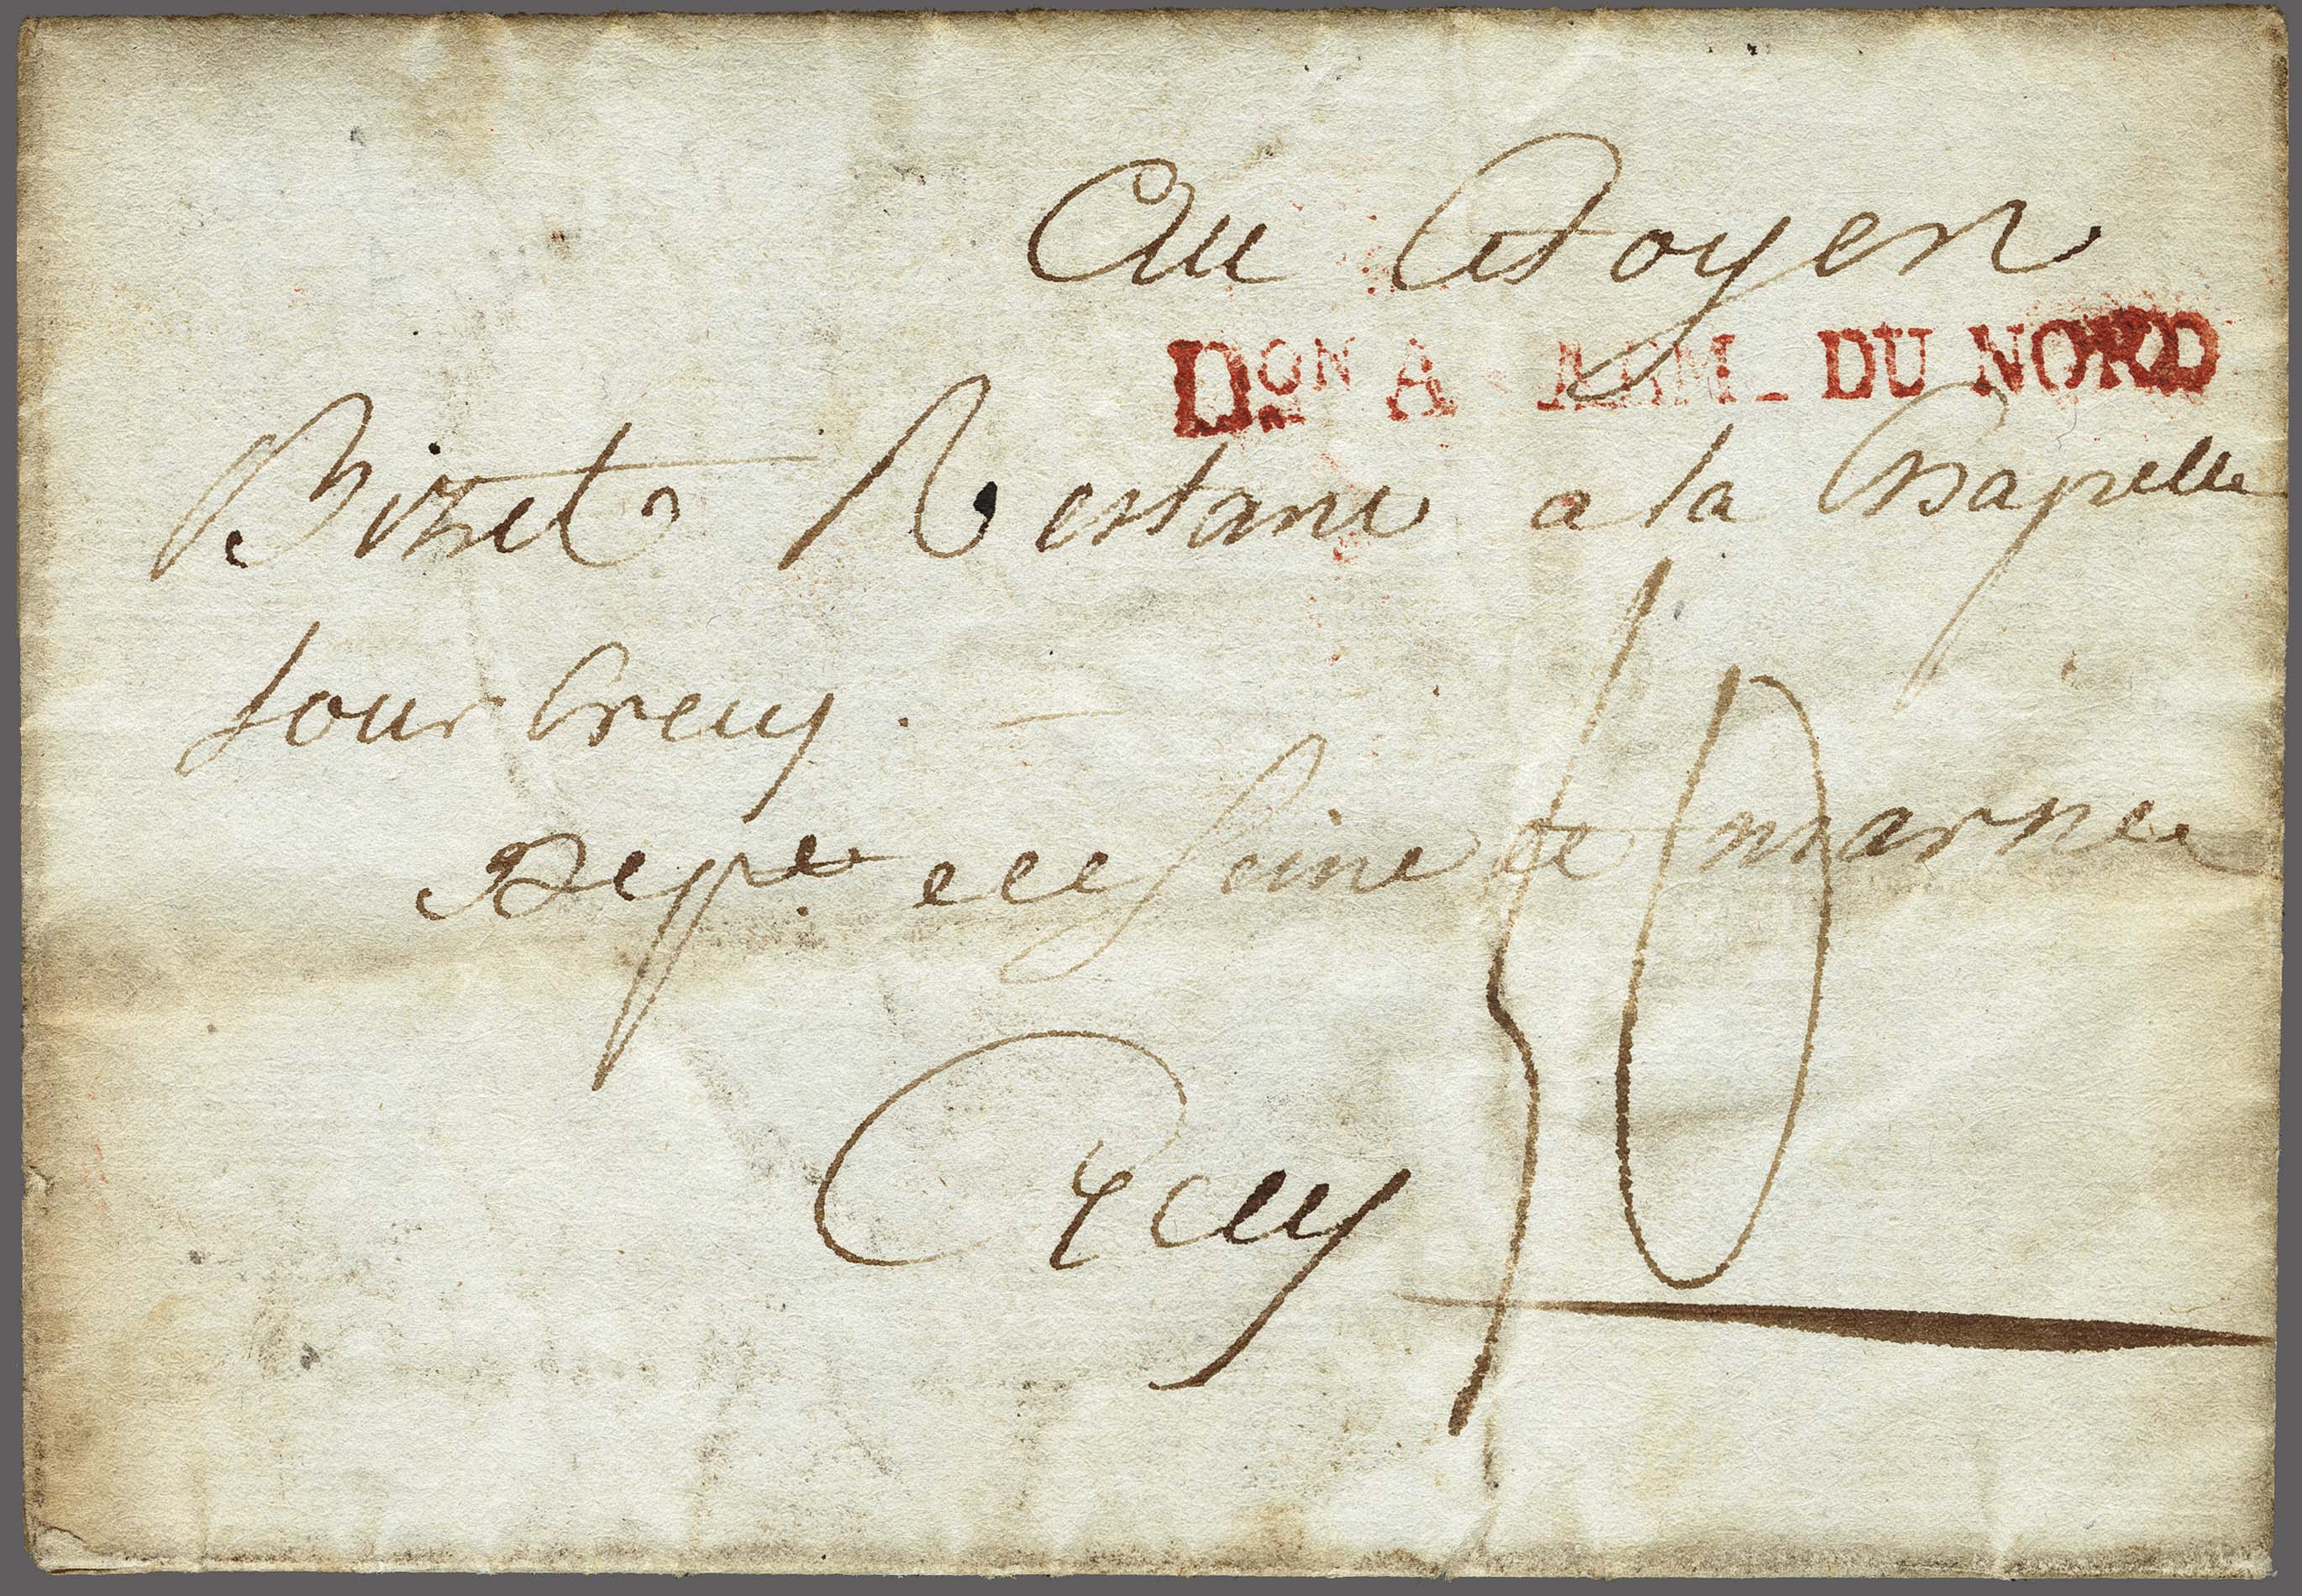 Au Citoyen
Don A ARM_ DU NORD
Bizet Restant a la Chapelle
sour Crecy .
Dept. de Seine et marne
50
Crecy